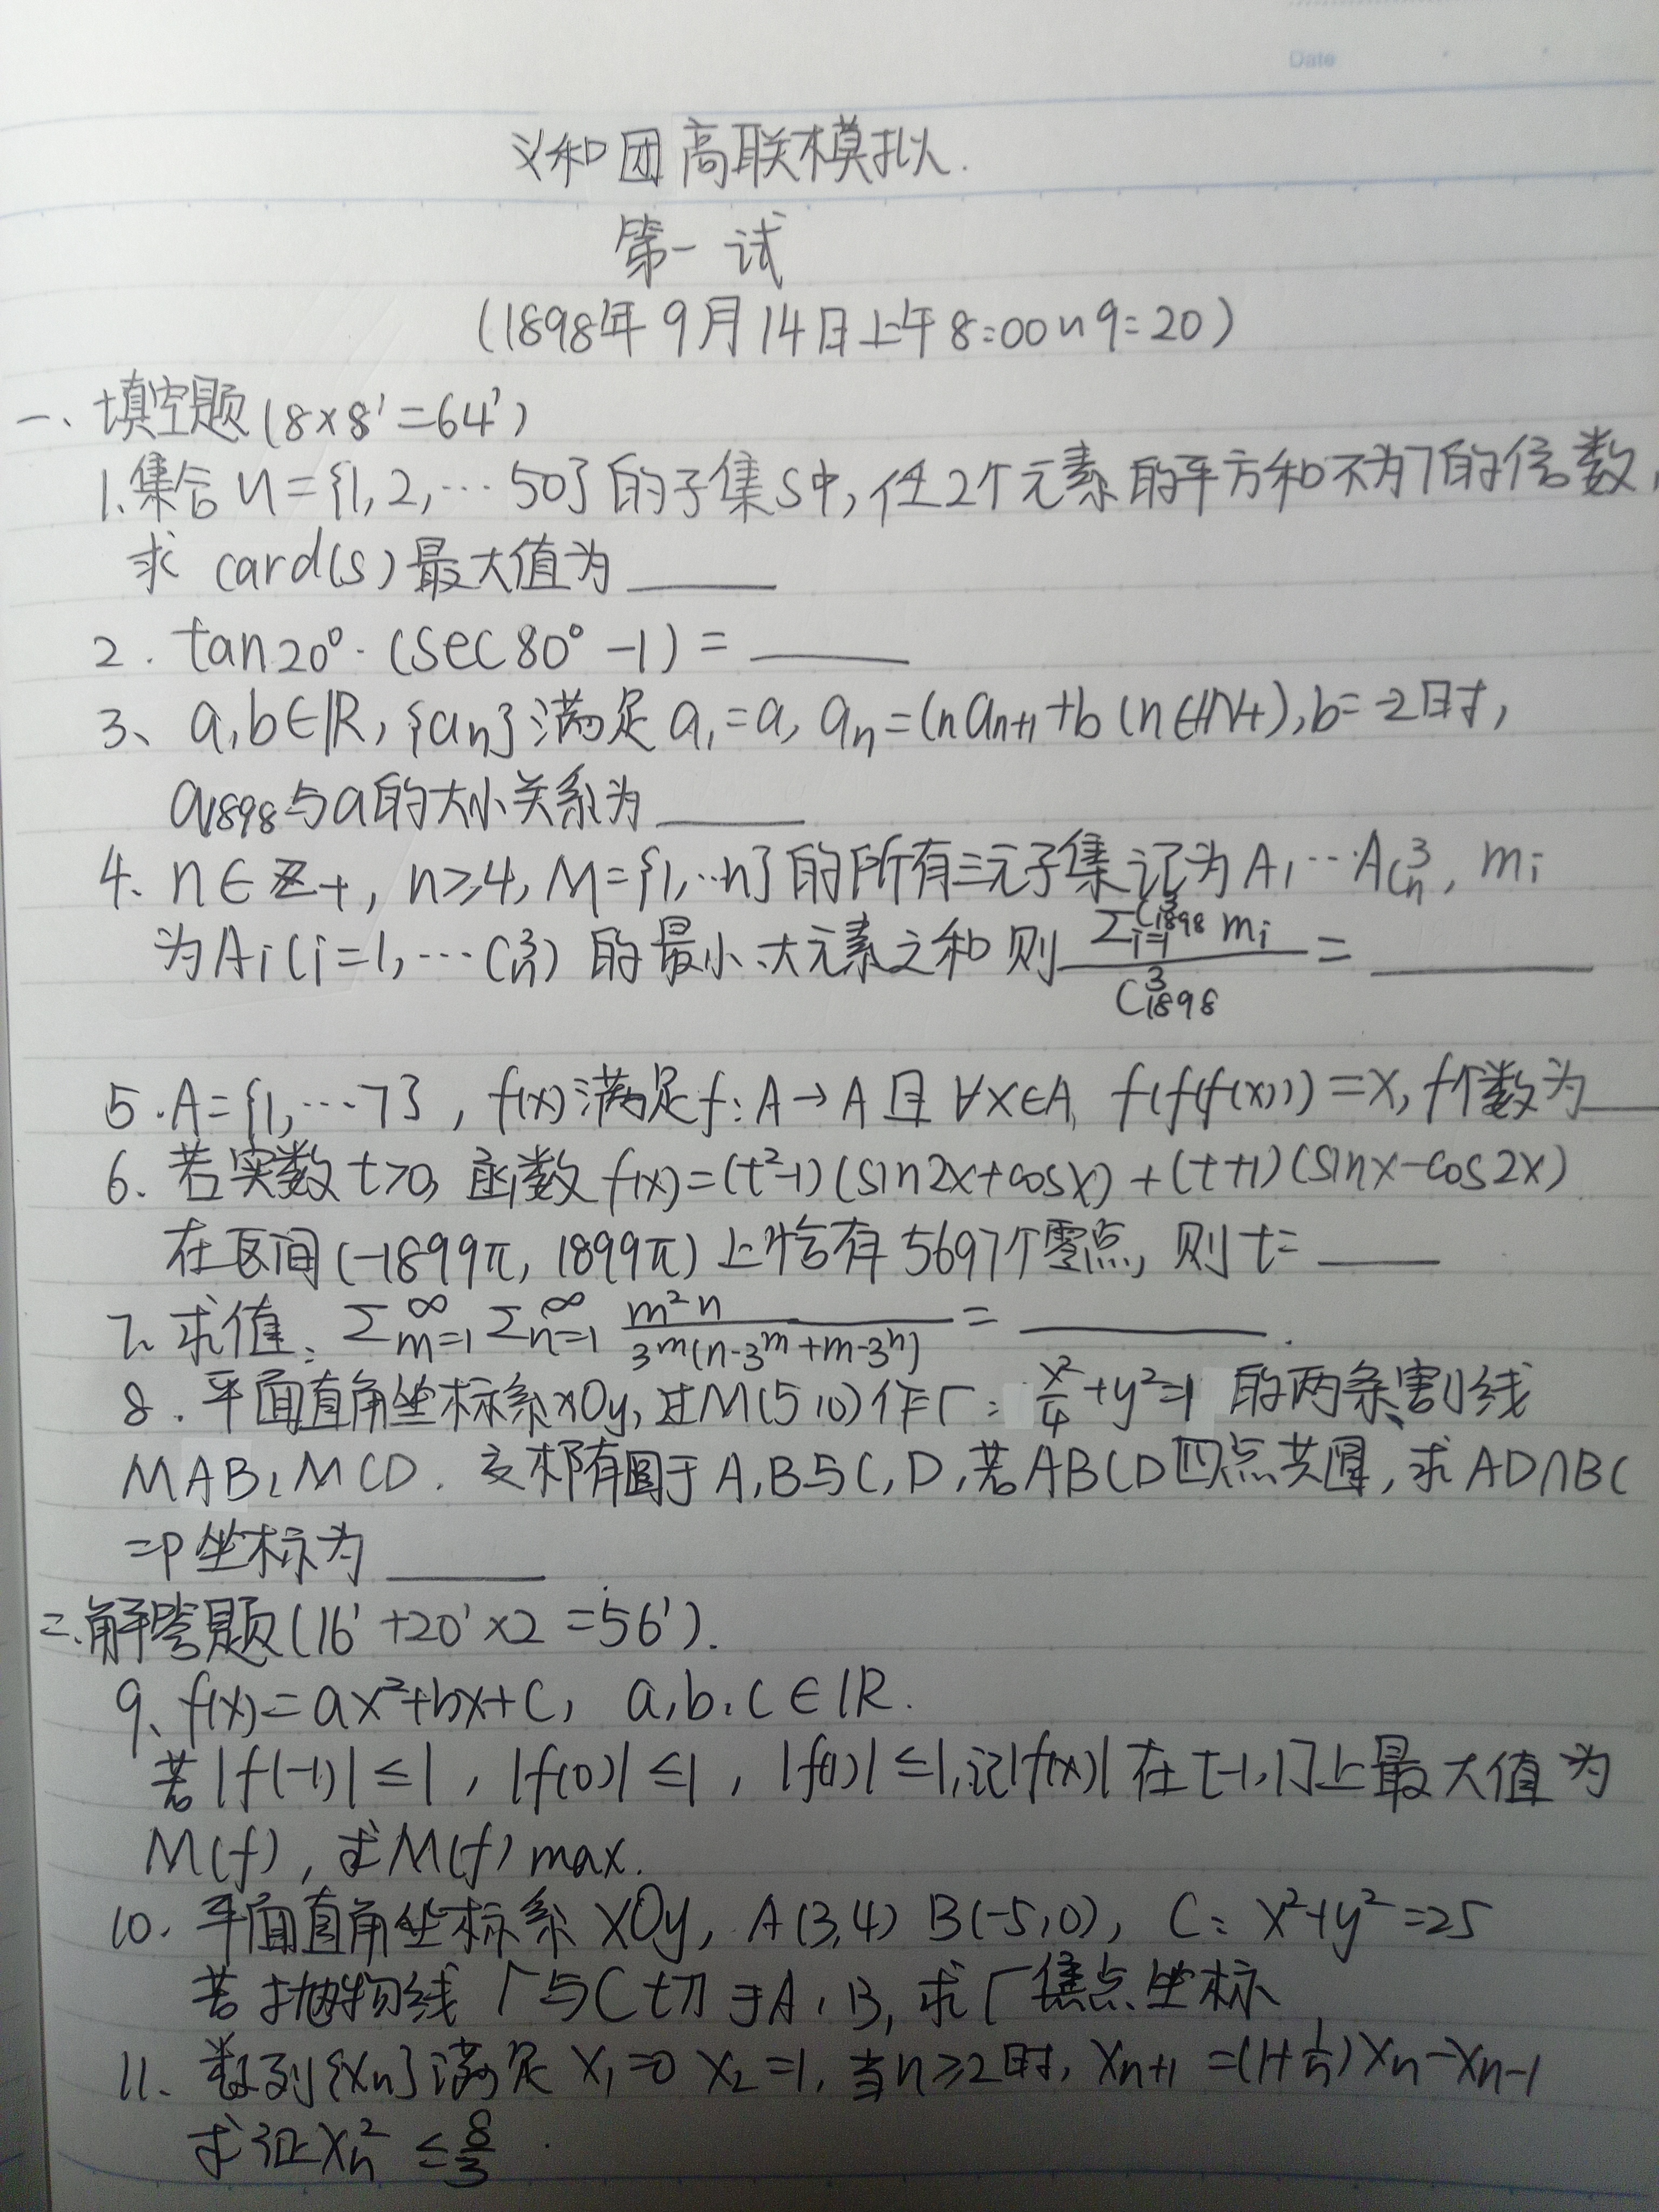 Date
义和团高联模拟.
第一试
(1898年9月14日上午8:00~9:20)
一、填空题(8×8'=64')
1.集合U={1,2,…50}的子集S中,任2个元素的平方和不为7的倍数,
求 card(S)最大值为____
2. tan20°·(sec80°-1)=____
3、a,b∈R,{an}满足a₁=a, an=(n an+1+b (n∈N+),b=-2时,
a1898与a的大小关系为____
4、n∈Z+, n≥4, M={1,…n}的所有三元子集记为A₁…A_{C_n^3}, mi
为Ai(i=1,…C_n^3)的最小、大元素之和则 \frac{Σ_{i=1}^{C_{1898}^3} mi}{C_{1898}^3} =____
5.A={1,…7}, f(x)满足f:A→A且∀x∈A, f(f(f(x)))=x, f个数为____
6、若实数t>0,函数f(x)=(t²-1)(sin2x+cosx)+(t+1)(sinx-cos2x)
在区间(-1899π, 1899π)上恰有5697个零点,则t=____
7、求值:Σ_{m=1}^∞ Σ_{n=1}^∞ \frac{m²n}{3^m(n·3^m+m·3^n)} =____.
8.平面直角坐标系xOy,过M(5,0)作Γ: \frac{x²}{4}+y²=1 的两条割线
MAB,MCD. 交椭圆于A,B与C,D,若ABCD四点共圆,求AD∩BC
=P坐标为____
二.解答题(16'+20'×2=56').
9、f(x)=ax²+bx+c, a,b,c∈R.
若|f(-1)|≤1, |f(0)|≤1, |f(1)|≤1,记|f(x)|在[-1,1]上最大值为
M(f),求M(f)max.
10. 平面直角坐标系xOy, A(3,4) B(-5,0), C: x²+y²=25
若抛物线Γ与C切于A,B,求Γ焦点坐标
11、数列{xn}满足x₁=0 x₂=1,当n≥2时, xn+1=(1+\frac{1}{n})xn-xn-1
求证xn²≤\frac{8}{3}.